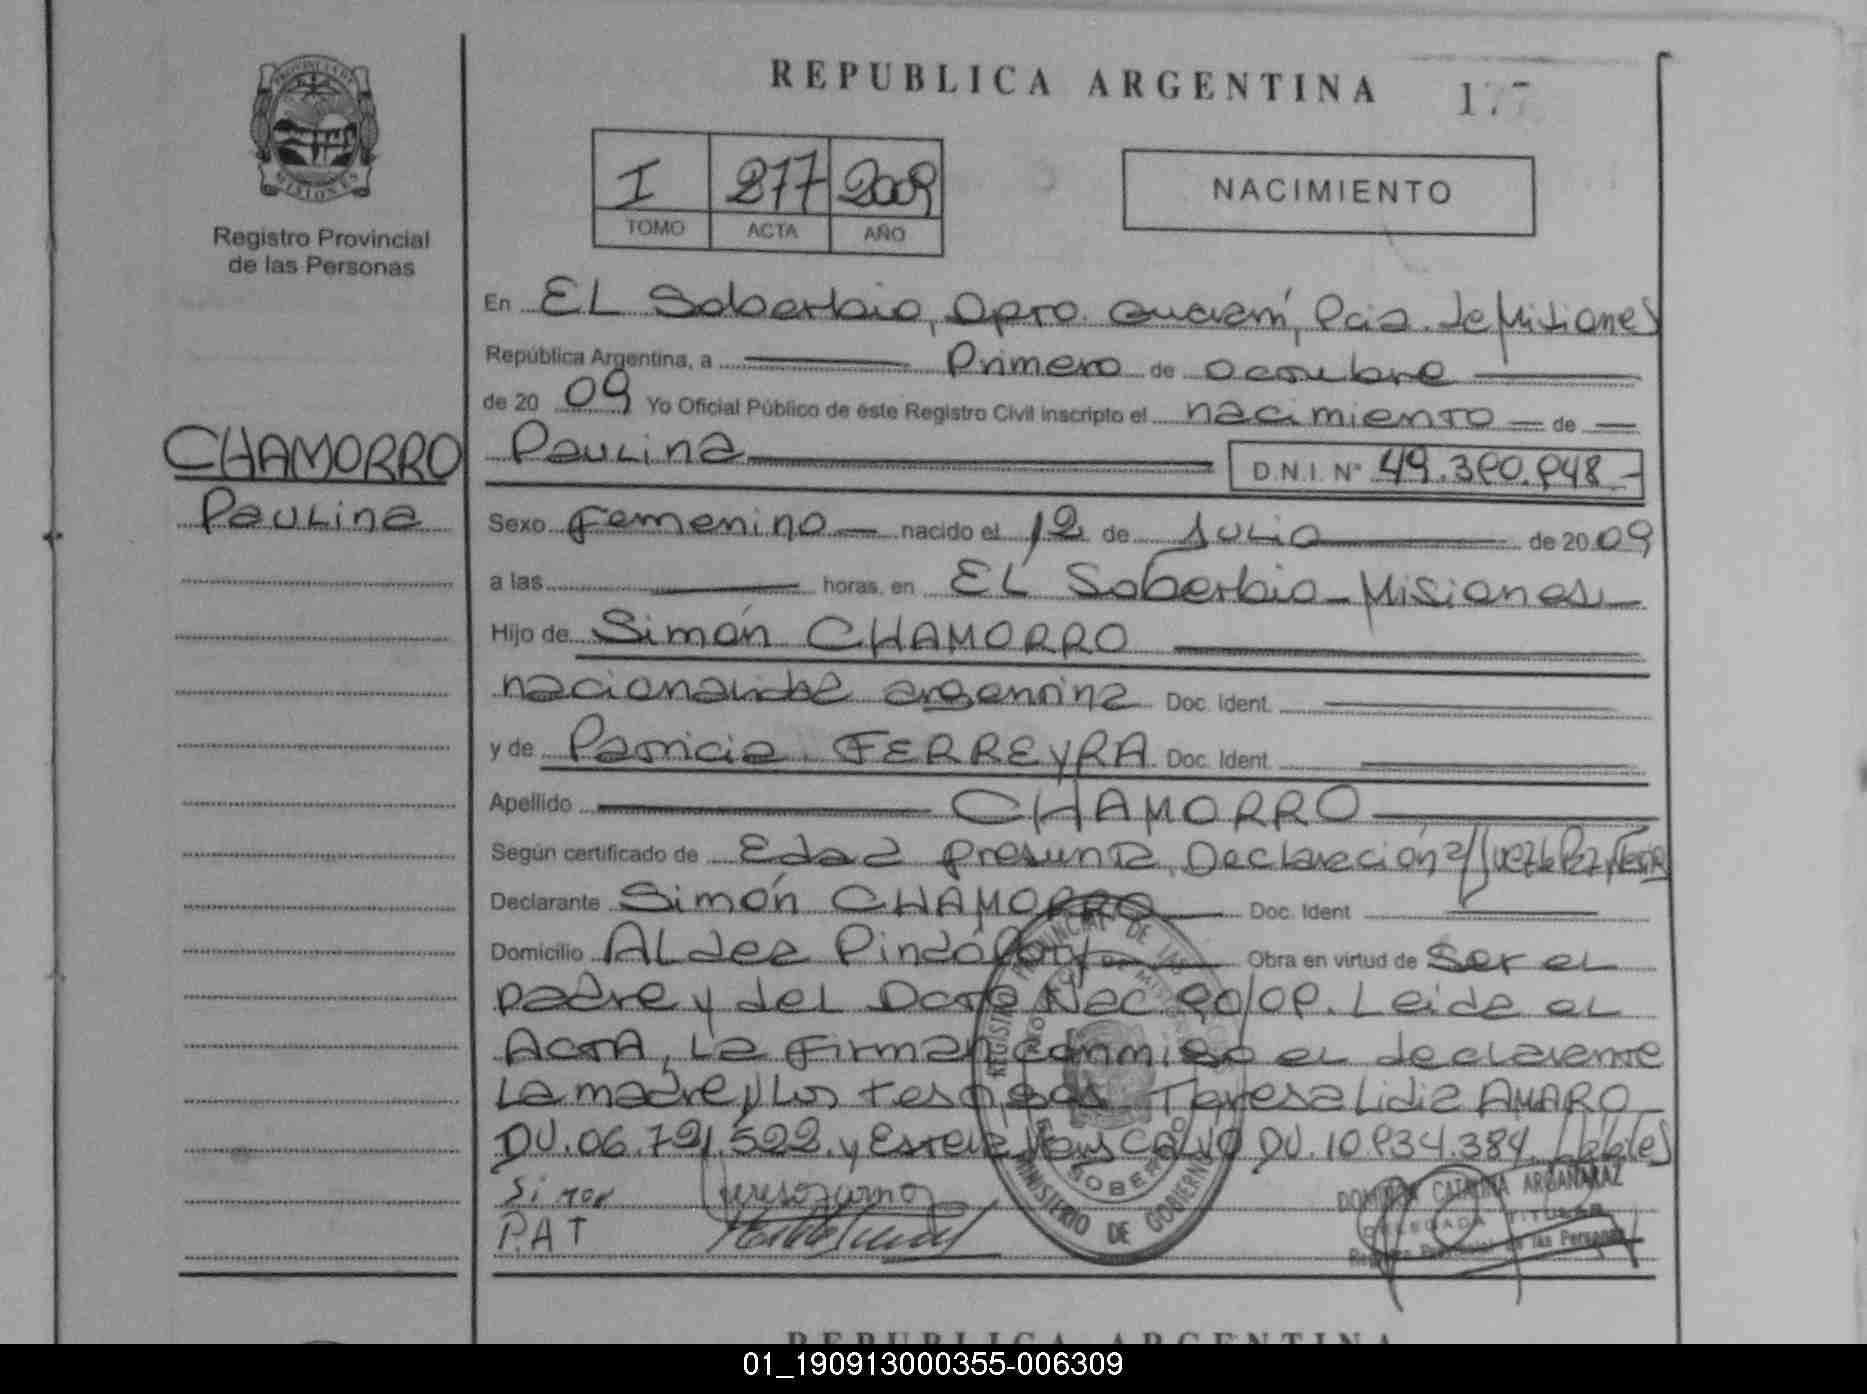 REPUBLICA ARGENTINA 177
PROVINCIA DE
MISIONES
Registro Provincial
de las Personas
I 277 2009
TOMO ACTA AÑO
NACIMIENTO
En EL Soberbio, Dpto. Guaraní, Pcia. de Misiones
República Argentina, a Primero de octubre
de 20 09 Yo Oficial Público de éste Registro Civil inscripto el nacimiento de
CHAMORRO
Paulina
Paulina D.N.I. Nº 49.380.848
Sexo Femenino nacido el 12 de Julio de 20 09
a las horas, en EL Soberbio - Misiones
Hijo de Simón CHAMORRO
nacionalidad argentina Doc. Ident.
y de Patricia FERREYRA Doc. Ident.
Apellido CHAMORRO
Según certificado de Edad presunta, Declaración Juez de Paz y
Declarante Simón CHAMORRO Doc. Ident
Domicilio ALdea Pindó Obra en virtud de Ser el
padre y del Nac 90/08. Leida el
ACTA, La Firman conmigo el declarante
La madre y Los testigos Teresa Lidia AMARO
DU. 06.721.522. y CALVO DU. 10.834.384.
Simon
PAT
REGISTRO PROVINCIAL DE LAS
MINISTERIO DE GOBIERNO
CATALINA ARGAÑARAZ
DELEGADA TITULAR
Registro Provincial de las Personas
REPUBLICA ARGENTINA
01_190913000355-006309